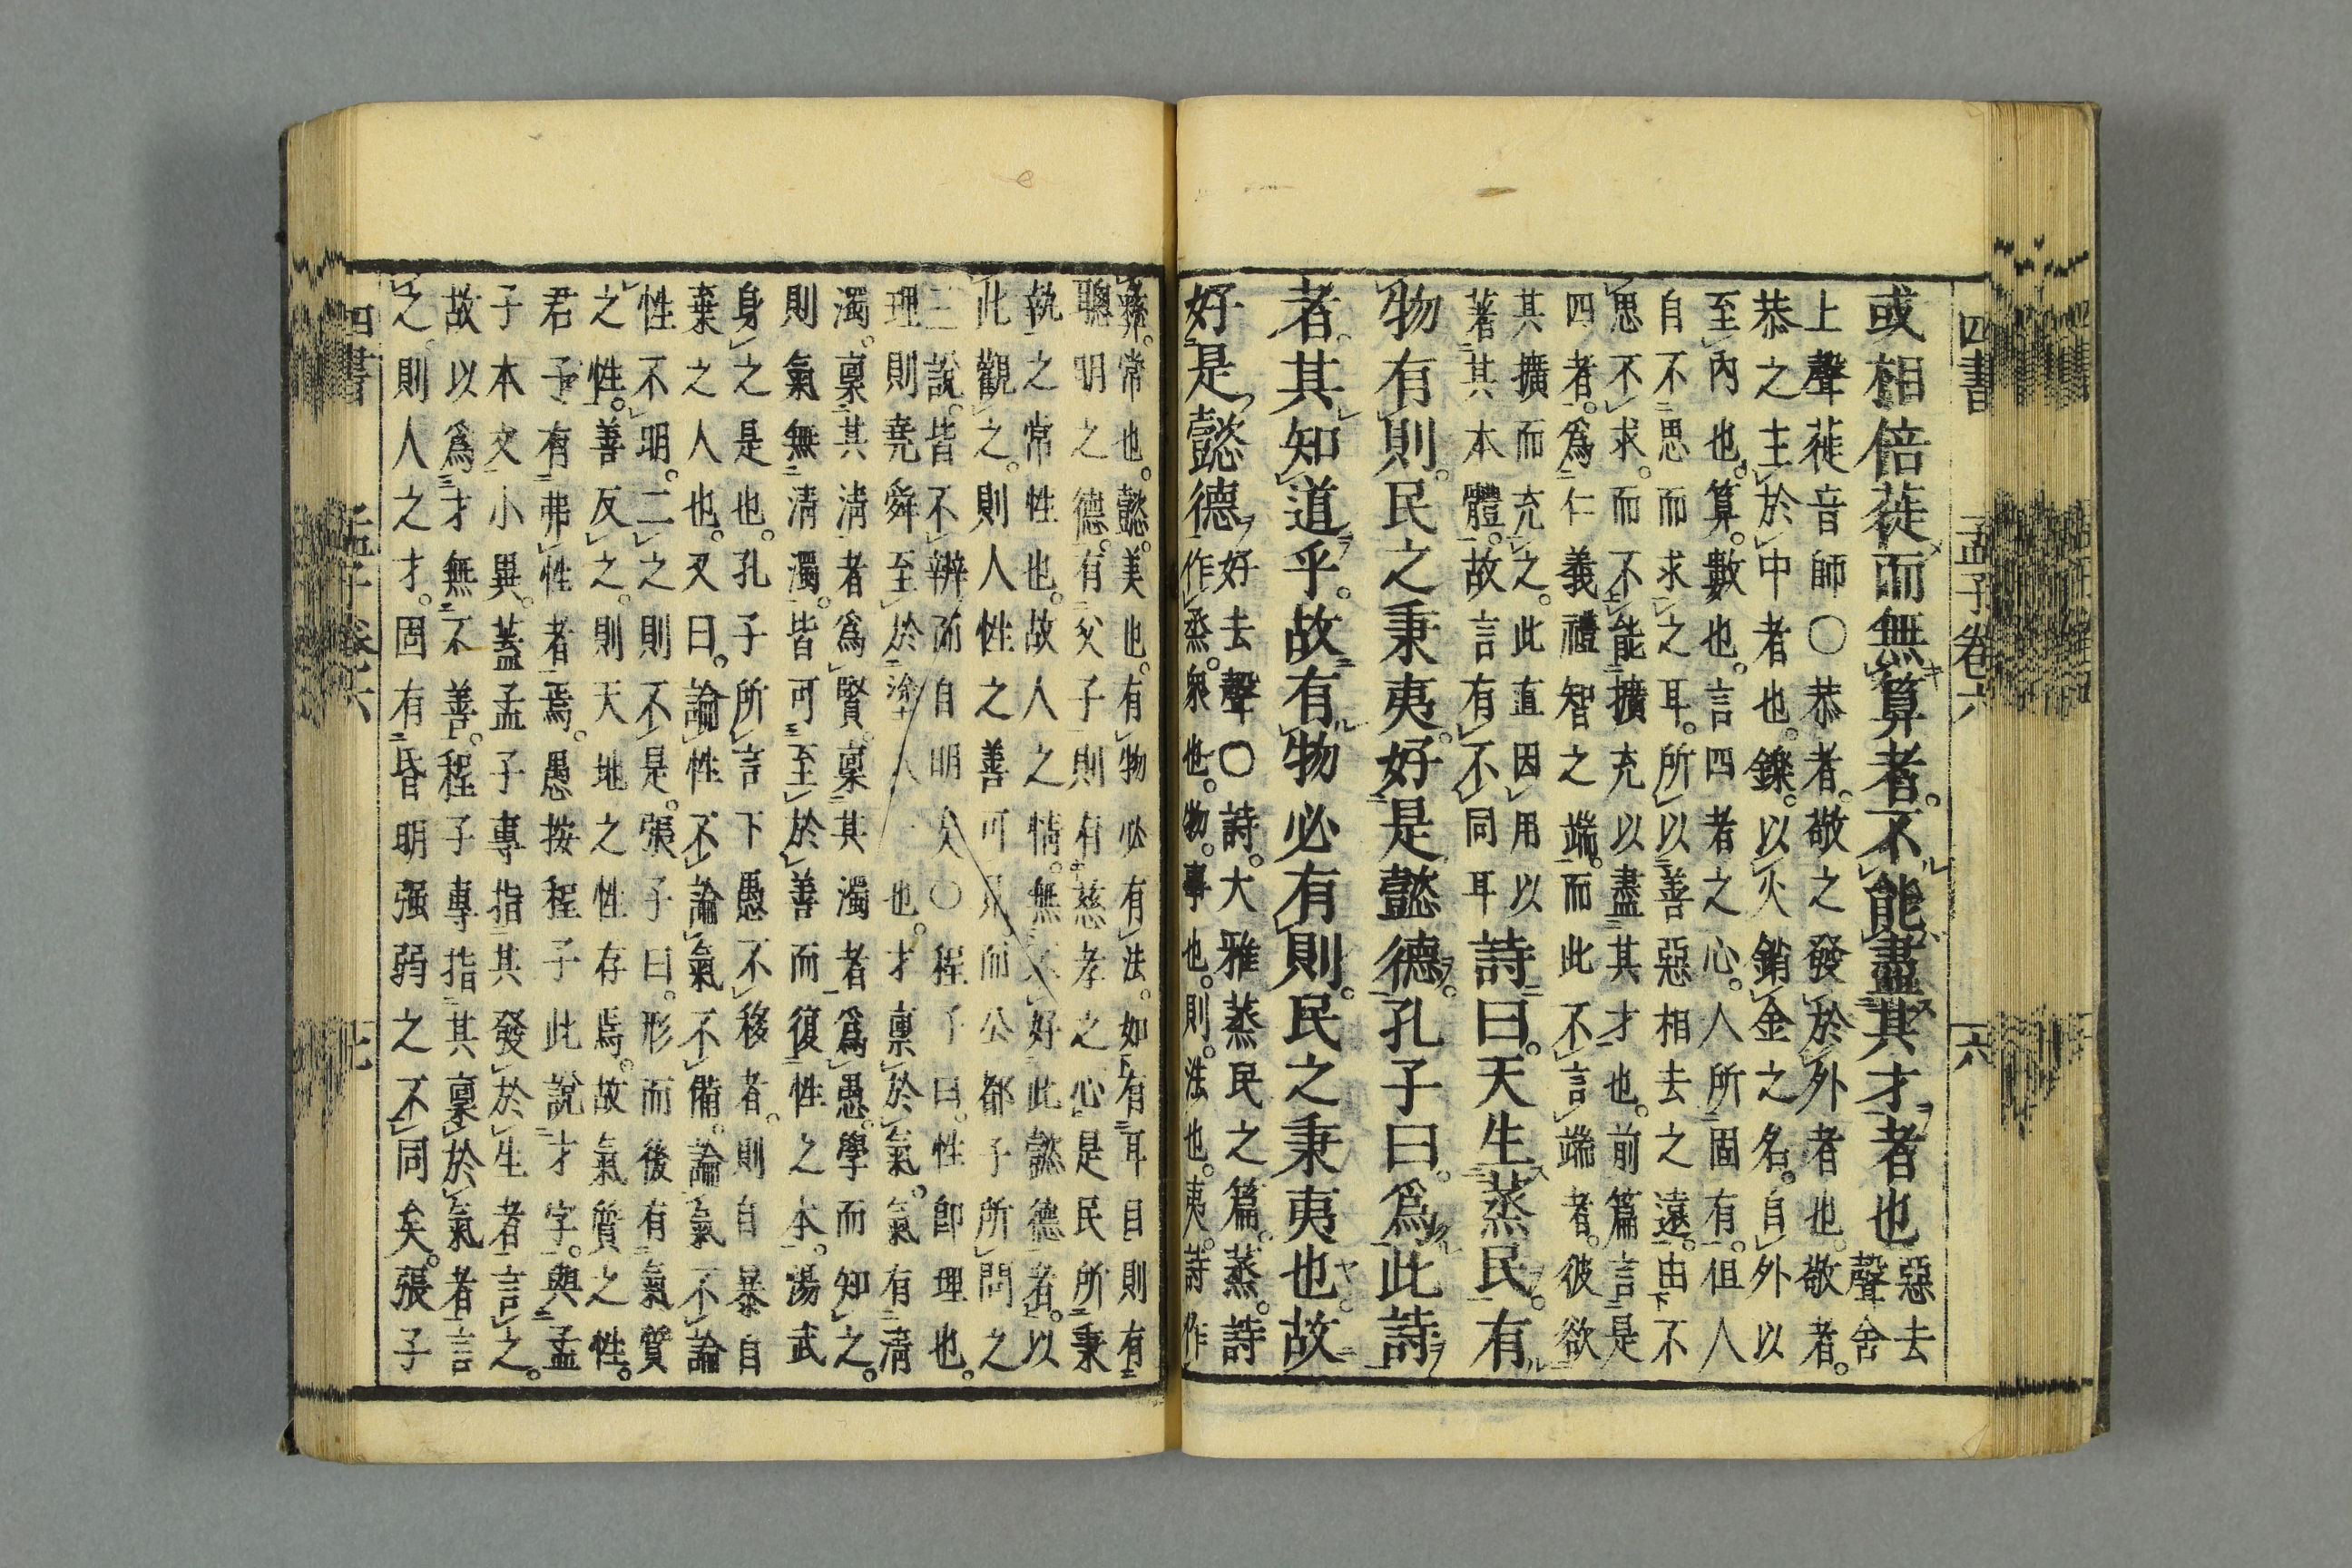 四書 孟子卷六 六
或相倍蓰而無算者。不能盡其才者也惡去聲舍
上聲蓰音師○恭者。敬之發於外者也。敬者。
恭之主於中者也。鑠。以火銷金之名。自外以
至內也。算。數也。言四者之心。人所固有。但人
自不思而求之耳。所以善惡相去之遠。由不
思不求。而不能擴充以盡其才也。前篇言是
四者。爲仁義禮智之端。而此不言端者。彼欲
其擴而充之。此直因用以
著其本體。故言有不同耳
詩曰。天生蒸民。有
物有則。民之秉夷。好是懿德。孔子曰。爲此詩
者。其知道乎。故有物必有則。民之秉夷也。故
好是懿德好去聲○詩。大雅蒸民之篇。蒸。詩
作烝。衆也。物。事也。則。法也。夷。詩作
彝。常也。懿。美也。有物必有法。如有耳目則有
聰明之德。有父子則有慈孝之心。是民所秉
執之常性也。故人之情。無不好此懿德者。以
此觀之。則人性之善可見。而公都子所問之
三說。皆不辨而自明矣○程子曰。性卽理也。
理則堯舜至於塗人一也。才稟於氣。氣有淸
濁。稟其淸者爲賢。稟其濁者爲愚。學而知之。
則氣無淸濁。皆可至於善而復性之本。湯武
身之是也。孔子所言下愚不移者。則自暴自
棄之人也。又曰。論性不論氣不備。論氣不論
性不明。二之則不是。張子曰。形而後有氣質
之性。善反之。則天地之性存焉。故氣質之性。
君子有弗性者焉。愚按程子此說才字。與孟
子本文小異。蓋孟子專指其發於生者言之。
故以爲才無不善。程子專指其稟於氣者言
之。則人之才。固有昏明强弱之不同矣。張子
四書 孟子卷六